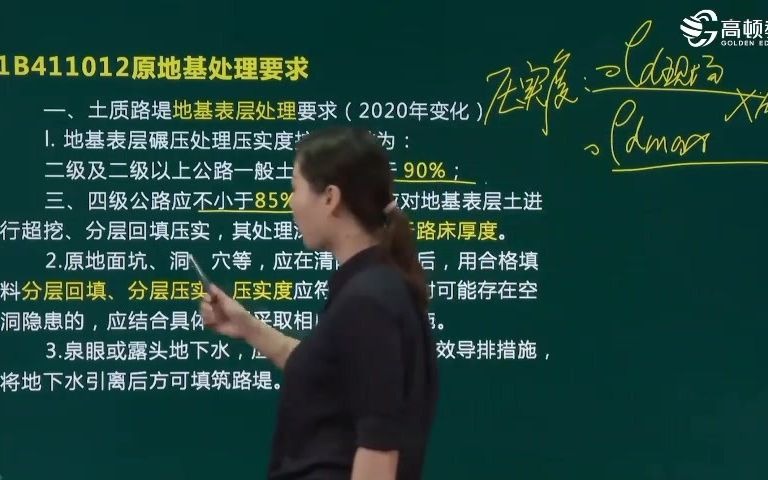 高顿教
GOLDEN ED
1B411012原地基处理要求
压实度:ρd现场
ρdmax
一、土质路堤地基表层处理要求（2020年变化）
l. 地基表层碾压处理压实度 为：
二级及二级以上公路一般土 90%；
三、四级公路应不小于85% 对地基表层土进
行超挖、分层回填压实，其处理 路床厚度。
2.原地面坑、洞、穴等，应在清 后，用合格填
料分层回填、分层压实，压实度应符 对可能存在空
洞隐患的，应结合具体 采取相 施。
3.泉眼或露头地下水， 效导排措施，
将地下水引离后方可填筑路堤。